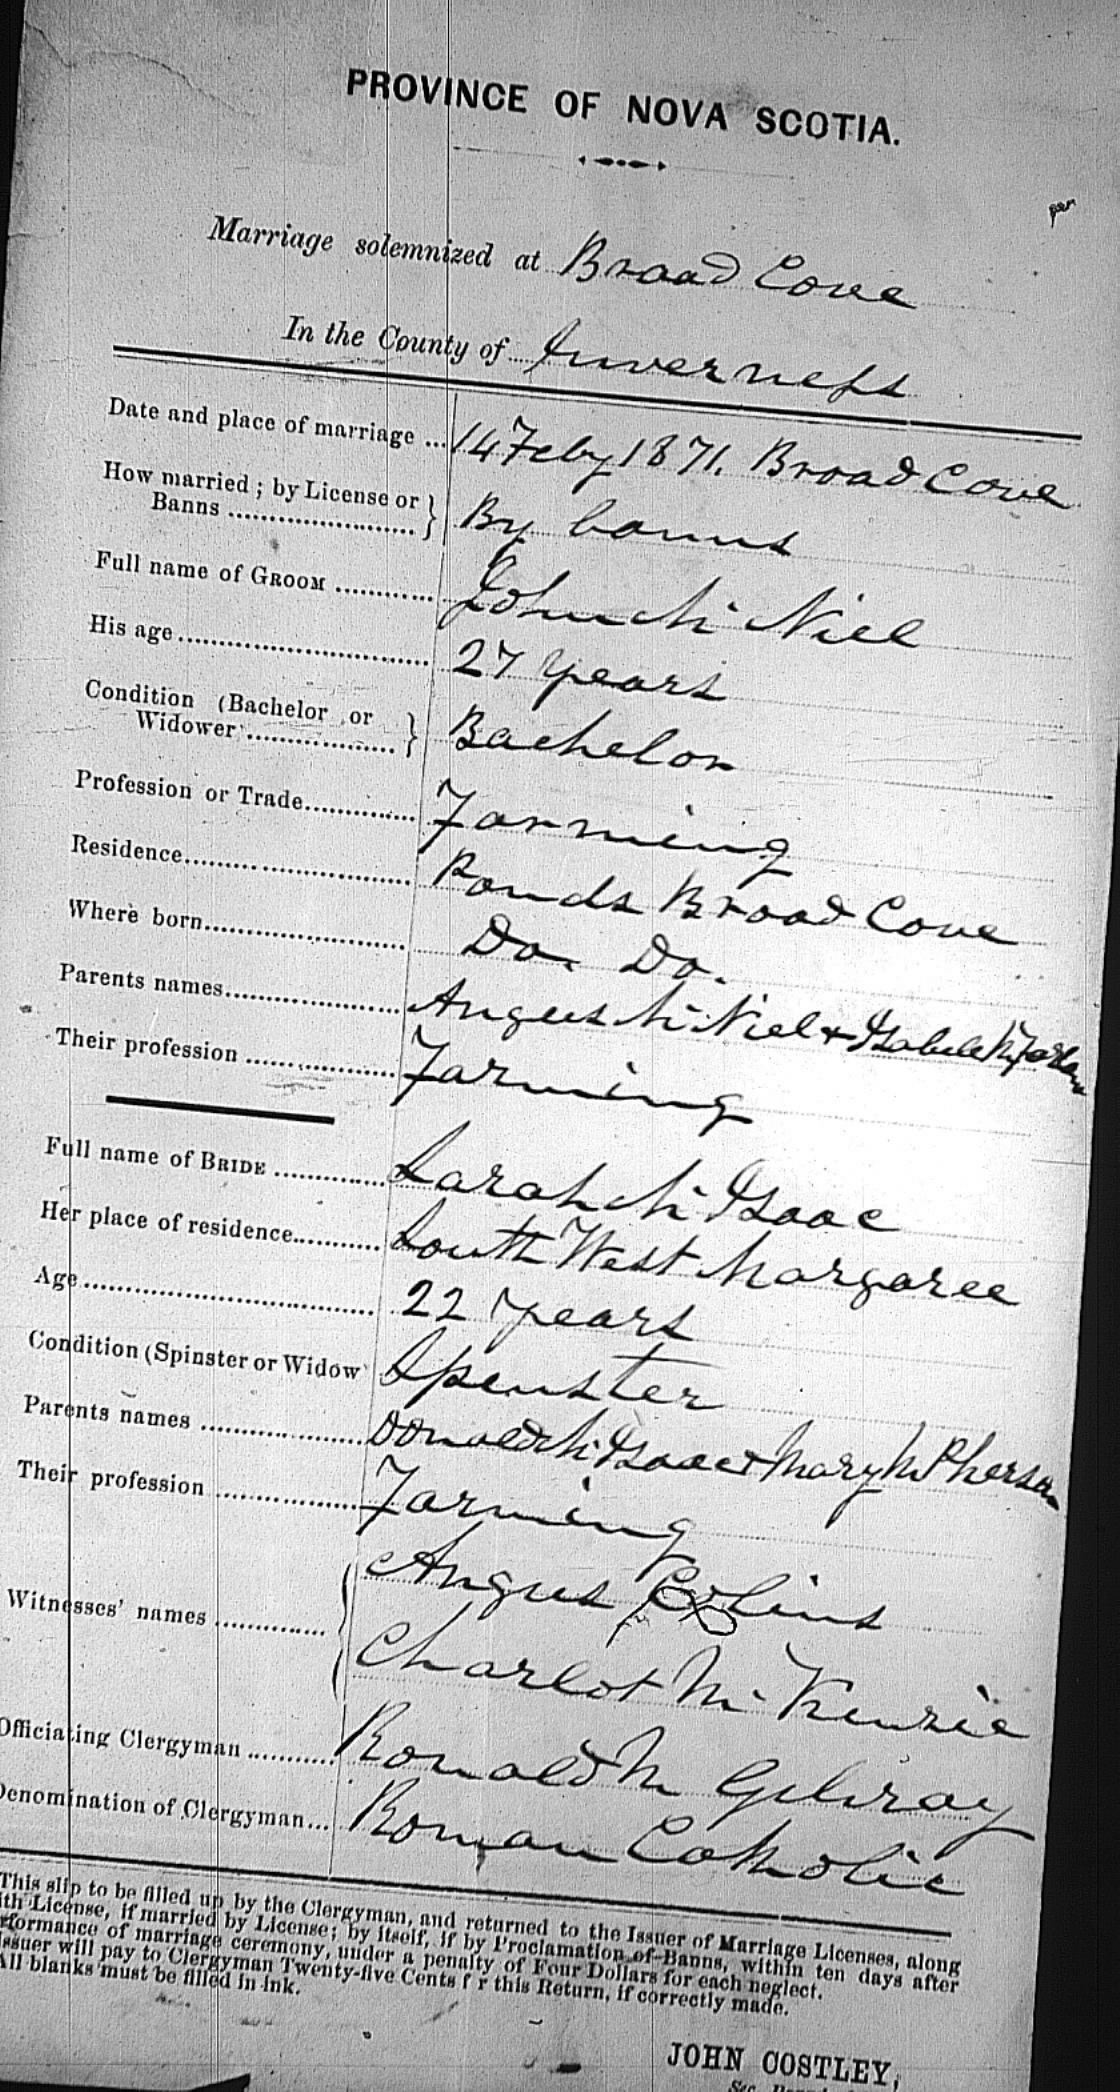 PROVINCE OF NOVA SCOTIA.
per
Marriage solemnized at Broad Cove
In the County of Inverness
Date and place of marriage ... 14 Feby 1871. Broad Cove
How married; by License or Banns } By banns
Full name of GROOM John Mc Niel
His age 27 years
Condition (Bachelor or Widower } Bachelor
Profession or Trade Farming
Residence Ponds Broad Cove
Where born Do. Do.
Parents names Angus Mc Niel &
Their profession Farming
Full name of BRIDE Sarah Mc Isaac
Her place of residence South West Margaree
Age 22 years
Condition (Spinster or Widow Spenster
Parents names Donald Mc Isaac & Mary McPherson
Their profession Farming
Witnesses' names { Angus
Charlot Mc Kenzie
Officiating Clergyman Ronald Mc Gilvray
Denomination of Clergyman... Roman Catholic
This slip to be filled up by the Clergyman, and returned to the Issuer of Marriage Licenses, along
ith License, if married by License; by itself, if by Proclamation of Banns, within ten days after
rformance of marriage ceremony, under a penalty of Four Dollars for each neglect.
ssuer will pay to Clergyman Twenty-five Cents f r this Return, if correctly made.
All blanks must be filled in ink.
JOHN COSTLEY,
Sec.